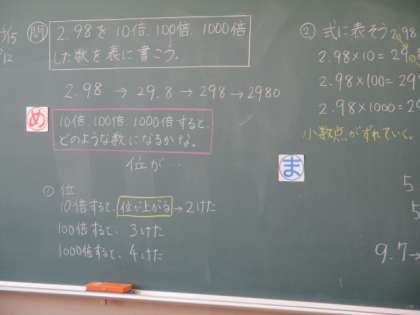 5/15
9/12
問 2.98を10倍、100倍、1000倍
した数を表に書こう。
2.98 → 29.8 → 298 → 2980
め
10倍、100倍、1000倍すると、
どのような数になるかな。
位が…
① 位
10倍すると、位が上がる→2けた
100倍すると、3けた
1000倍すると、4けた
② 式に表そう
2.98×10=29
2.98×100=29
2.98×1000=2
小数点がずれていく。
ま
5
5
9.7→